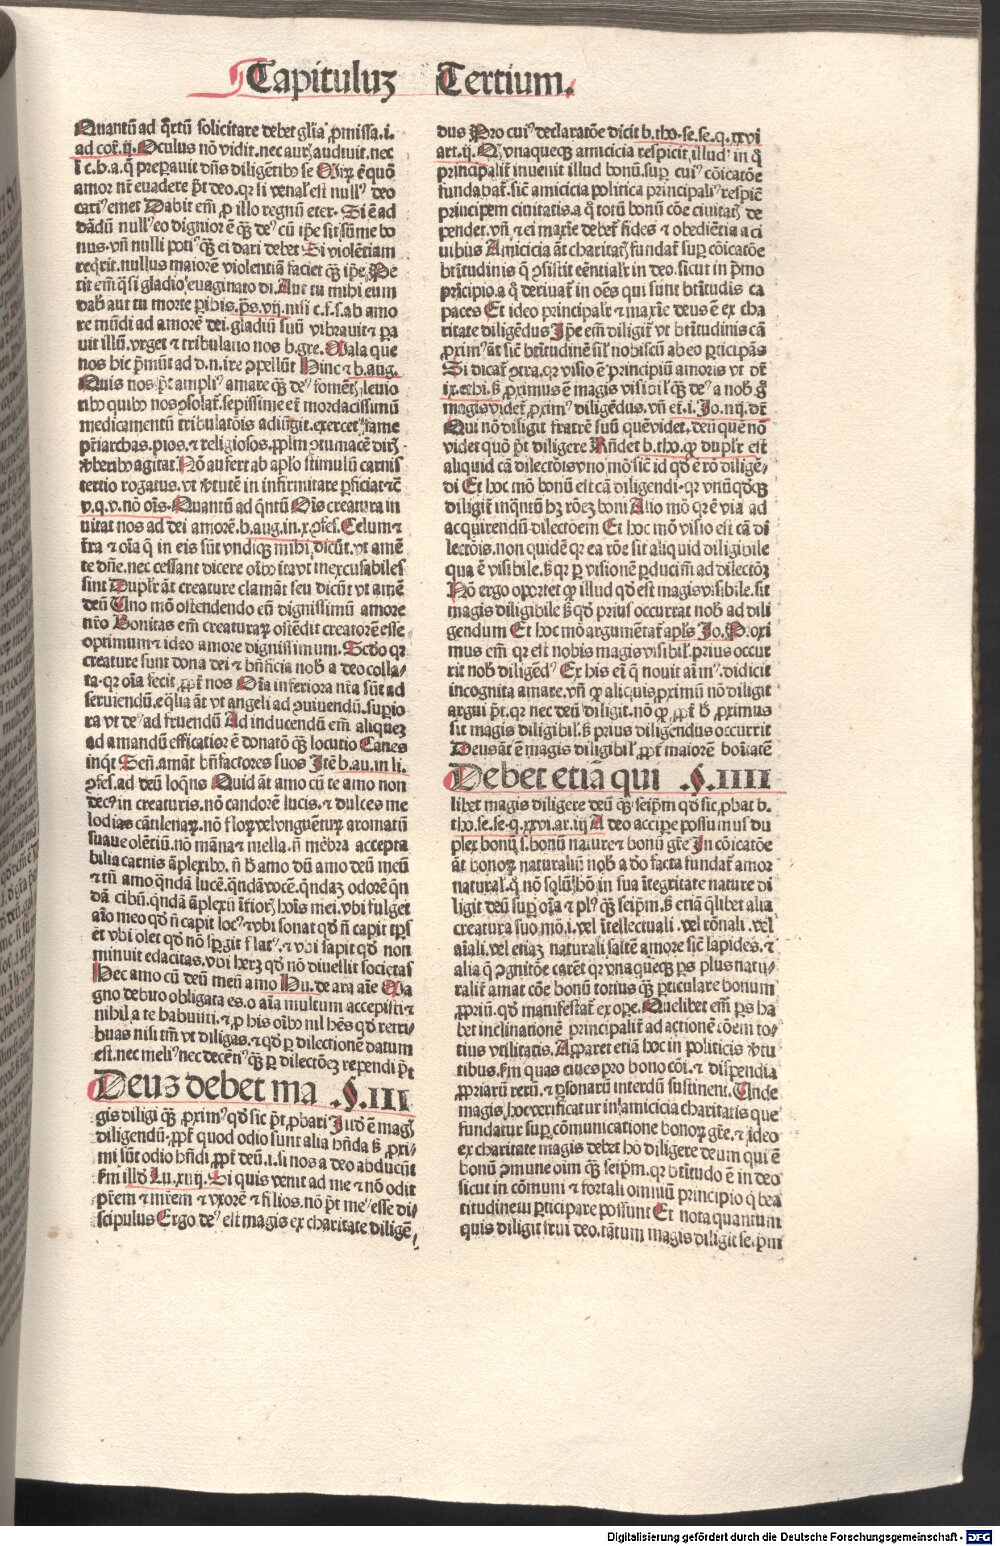 Capituluꝫ Tertium.
Quantū ad q̄rtū solicitare debet gl̄ia p̄missa.i.
ad cor̄.ij.Oculus nō vidit.nec auris audiuit.nec
ī c.b.a.q̄ preparauit dn̄s diligētibꝰ se
amor nr̄ euadere p̄t deo.qr si venal' est nullꝰ deo
cariꝰ emet Dabit em̄ p illo regnū eter. Si ē ad
dādū nullꝰ eo dignior ē qꝫ deꝰ cū ip̄e sit sūme bo
nus.vn̄ nulli potiꝰ qꝫ ei dari debet Si violētiam
reqrit.nullus maiorē violentiā faciet qꝫ ip̄e Pe
tit em̄ q̄si gladio euaginato di.Aut tu mihi eum
dab aut tu morte peribis.ps.vij.nisi c.f.s.ab amo
re mūdi ad amorē dei.gladiū suū vibrauit ⁊ pa
uit illū.vrget ⁊ tribulatio nos b.gre. Mala que
nos hic p̄mūt ad d.n.ire ꝯpellūt Hinc ⁊ b.aug.
Quis nos p̄t ampliꝰ amare qꝫ deꝰ
tibꝰ quibꝰ nos ꝯsolat̄.sepissime et mordacissimū
medicamentū tribulatōis adiūgit.exercet fame
pr̄iarchas.pios.⁊ religiosos.pplm ꝯtumacē
ꝟberibꝰ agitat Nō aufert ab aplo stimulū carnis
tertio rogatus.vt ꝟtutē in infirmitate perficiat ⁊c̄
v.q.v.nō oīs. Quantū ad qntū Oīs creatura in
uitat nos ad dei amorē.b.aug.in.x.ꝯfes. Celum ⁊
t̄ra ⁊ oīa q̄ in eis sūt vndiqꝫ mihi dicūt.vt amē
te dn̄e.nec cessant dicere oībꝰ ita vt inexcusabiles
sint Duplr̄ āt creature clamāt seu dicūt vt amē
deū Uno mō ostendendo eū dignissimū amore
nr̄o Bonitas em̄ creaturaꝝ ostēdit creatorē esse
optimum ⁊ ideo amore dignissimum. Scdo qr
creature sunt dona dei ⁊ bn̄ficia nob̄ a deo colla-
ta.qr oīa fecit ppt̄ nos Oīa inferiora nr̄a sūt ad
seruiendū.eq̄lia āt vt angeli ad ꝯuiuendū.supio
ra vt deꝰ ad fruendū Ad inducendū em̄ aliqueꝫ
ad amandū efficatior ē donatō qꝫ locutio Canes
inqt Sen̄.amāt bn̄factores suos Itē b.au.in li.
ꝯfes.ad deū loqn̄s Quid āt amo cū te amo non
decꝰ in creaturis.nō candorē lucis.⁊ dulces me
lodias cātilenaꝝ.nō floꝝ vel vnguētoꝝ aromatū
suaue olētiū.nō māna ⁊ mella.n̄ mēbra accepta
bilia carnis āplexibꝰ.n̄ h̄ amo dū amo deū meū
⁊ tn̄ amo qndā lucē.qndā vocē.qndaꝫ odorē qn
dā cibū.qndā āplexū īt̄ioris hoīs mei.vbi fulget
aīo meo qd̄ n̄ capit locꝰ ⁊ vbi sonat qd̄ n̄ capit tps
et vbi olet qd̄ nō spgit flatꝰ.⁊ vbi sapit qd̄ non
minuit edacitas.vbi heret qd̄ nō diuellit societas
Hec amo cū deū meū amo Hu.de ara aīe Ma
gno debito obligata es.o aīa multum accepisti ⁊
nihil a te habuisti.⁊ p his oībꝰ nil hēs qd̄ retri-
buas nisi tm̄ vt diligas.⁊ qd̄ p dilectionē datum
est.nec meliꝰ nec decentiꝰ qꝫ p dilectōeꝫ rependi p̄t
Deus debet ma §.III
gis diligi qꝫ pximꝰ qd̄ sic p̄t pbari
diligendū.ppt̄ quod odio sunt alia hn̄da sꝫ pxi-
mi sūt odio hn̄di ppt̄ deū.i.si nos a deo abducūt
fm illd̄ Lu.xiiij. Si quis venit ad me ⁊ nō odit
pr̄em ⁊ mr̄em ⁊ vxorē ⁊ filios.nō p̄t meꝰ esse di-
scipulus Ergo deꝰ est magis ex charitate diligē-
dus Pro cuiꝰ declaratōe dicit b.tho.se.se.q.xxvi
art.ij. Qr vnaqueqꝫ amicicia respicit illud in q̄
principalit̄ inuenit illud bonū.sup cuiꝰ cōicatōe
fundat̄. sic amicicia politica principaliꝰ respicit
principem ciuitatis.a q̄ totū bonū cōe ciuitatis de
pendet.vn̄ ⁊ ei maxīe debet̄ fides ⁊ obediētia a ci
uibus Amicicia āt charitatis fundat̄ sup cōicatōe
btītudinis q̄ ꝯsistit eēntialr̄ in deo.sicut in p̄mo
principio.a q̄ deriuat̄ in oēs qui sunt btītudīs ca
paces Et ideo principalr̄ ⁊ maxīe deus ē ex cha
ritate diligēdus Ip̄e em̄ diligit̄ vt btītudinis cā
pximꝰ āt sic btītudinē sil' nobiscū ab eo pticipās
Si dicat̄ ꝯtra.qr visio ē principiū amoris vt dr̄
ix.ethi.sꝫ proximus ē magis visibil' qꝫ deꝰ a nob̄ ḡ
magis videt̄ proximꝰ diligēdus.vn̄ et.i.Jo.iiij.dr̄
Qui nō diligit fratrē suū quē videt.deū quē nō
videt quō p̄t diligere Rn̄det b.tho. qd duplr̄ est
aliquid cā dilectōis vno mō sic id qd̄ ē rō diligē-
di Et hoc mō bonū est cā diligendi.qr vnūqd̄qꝫ
diligit̄ inq̄ntū hꝫ rōeꝫ boni Alio mō qr ē via ad
acquirendū dilectōem Et hoc mō visio est cā di
lectōis.non quidē qr ea rōe sit aliquid diligibile
qua ē visibile.sꝫ qr p visionē pducim̄ ad dilectōeꝫ
Nō ergo oportet qd illud qd̄ est magis visibile.sit
magis diligibile sꝫ qd̄ prius occurrat nob̄ ad dili
gendum Et hoc mō argumētat̄ apl's Jo. Proxi
mus em̄ qr est nobis magis visibil'.prius occur
rit nob̄ diligēdꝰ Ex his ei q̄ nouit aīmꝰ.didicit
incognita amare.vn̄ qd aliquis pximū nō diligit
argui p̄t.qr nec deū diligit.nō qd ppt̄ h̄ proximus
sit magis diligibil'.sꝫ prius diligendus occurrit
Deus āt ē magis diligibil' ppt̄ maiorē boītatē
Debet etiā qui §.IIII
libet magis diligere deū qꝫ seipm qd̄ sic pbat b.
tho.se.se.q.xxvi.ar.iij A deo accipe possumus du
plex bonū s.bonū nature ⁊ bonū gr̄e In cōicatōe
āt bonoꝝ naturaliū nob̄ a do facta fundat̄ amor
natural'.q̄ nō solū hō in sua ītegritate nature di
ligit deū sup oīa ⁊ plꝰ qꝫ seipm.sꝫ etiā q̄libet alia
creatura suo mō.i.vel ītellectuali vel rōnali.vel
aīali.vel etiaꝫ naturali saltē amore sic lapides.⁊
alia q̄ ꝯgnitōe carēt qr vnaqueqꝫ ps plus natu-
ralit̄ amat cōe bonū totius qꝫ pticulare bonum
ppriū.qd̄ manifestat̄ ex ope.Quelibet em̄ ps ha
bet inclinationē principalit̄ ad actionē cōem to-
tius vtilitatis. Apparet etiā hoc in politicis ꝟtu
tibus.fm quas ciues pro bono cōi.⁊ dispendia
ppriarū rerū.⁊ psonarū interdū sustinent. Unde
magis hoc verificatur in amicicia charitatis que
fundatur sup cōmunicatione bonoꝝ gr̄e.⁊ ideo
ex charitate magis debet hō diligere deum qui ē
bonū ꝯmune oīm qꝫ seipm.qr btītudo ē in deo
sicut in cōmuni ⁊ fontali omniū principio q̄ bea
titudinem pticipare possunt Et nota quantum
quis diligit frui deo.tātum magis diligit se.pm
Digitalisierung gefördert durch die Deutsche Forschungsgemeinschaft - DFG